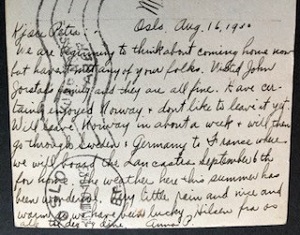 Kjære Petra: - Oslo, Aug. 16, 19
We are beginning to think about coming home now
but have met any of your folks. Visited John
family and they are all fine. Have cer-
tainly enjoyed Norway & dont like to leave it yet.
Will leave Norway in about a week & will then
go through Sweden & Germany to France where
we will board the September 6th
for home. The weather here this summer has
been wonderful. Very little rain and nice and
warm so we have been lucky. Hilsen fra os
alle til dig og dine. Anna